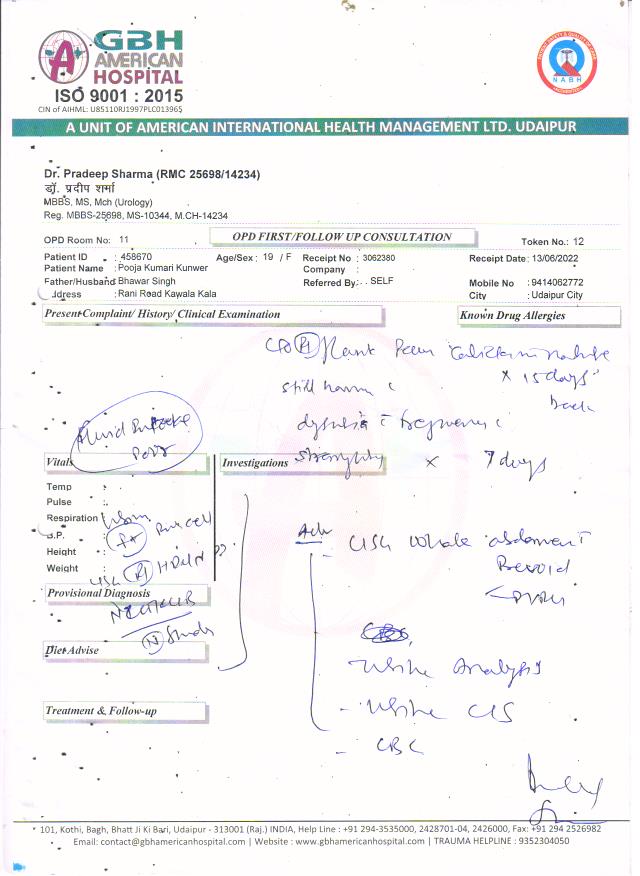 GBH
AMERICAN
HOSPITAL
ISO 9001 : 2015
CIN of AIHML: U85110RJ1997PLC013965
NABH
A UNIT OF AMERICAN INTERNATIONAL HEALTH MANAGEMENT LTD. UDAIPUR
Dr. Pradeep Sharma (RMC 25698/14234)
डॉ. प्रदीप शर्मा
MBBS, MS, Mch (Urology)
Reg. MBBS-25698, MS-10344, M.CH-14234
OPD Room No: 11 OPD FIRST/FOLLOW UP CONSULTATION Token No.: 12
Patient ID : 458670 Age/Sex : 19 / F Receipt No : 3062380 Receipt Date: 13/06/2022
Patient Name : Pooja Kumari Kunwer Company :
Father/Husband Bhawar Singh Referred By: . . SELF Mobile No : 9414062772
ddress : Rani Road Kawala Kala City : Udaipur City
Present Complaint/ History/ Clinical Examination Known Drug Allergies
x 15 days
back
still having
Fluid Intake
Poor
x 7 days
Vitals Investigations
Temp :
Pulse :
Respiration
B.P. :
Height :
Weight :
USG Rt HDUN
Adv
USG Whole abdomen
Provisional Diagnosis
Diet Advise
Urine Analysis
- Urine C/S
- CBC
Treatment & Follow-up
101, Kothi, Bagh, Bhatt Ji Ki Bari, Udaipur - 313001 (Raj.) INDIA, Help Line : +91 294-3535000, 2428701-04, 2426000, Fax: +91 294 2526982
Email: contact@gbhamericanhospital.com | Website : www.gbhamericanhospital.com | TRAUMA HELPLINE : 9352304050